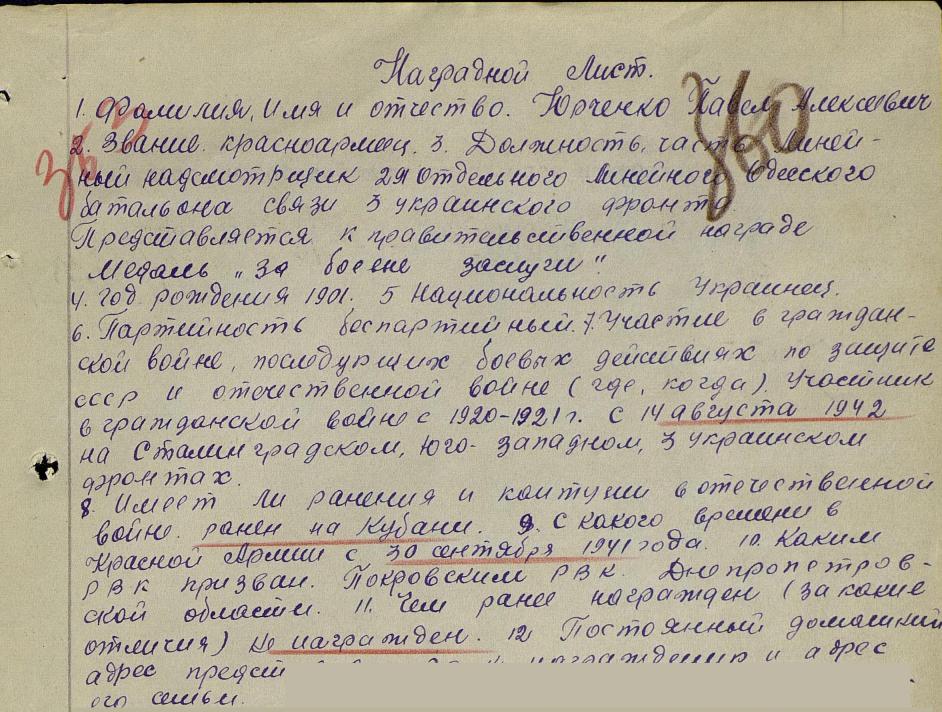 Наградной Лист.
1. Фамилия, имя и отчество. Юрченко Павел Алексеевич
2. Звание. красноармеец. 3. Должность, часть Линей-
ный надсмотрщик 29 отдельного Линейного Одесского
батальона связи 3 украинского фронта.
Представляется к правительственной награде
Медаль „За боевые заслуги“.
4. Год рождения 1901. 5 Национальность Украинец.
6. Партийность беспартийный. 7. Участие в граждан-
ской войне, последующих боевых действиях по защите
СССР и отечественной войне (где, когда). Участник
в гражданской войне с 1920-1921 г. с 14 августа 1942
на Сталинградском, Юго-западном, 3 украинском
фронтах.
8. Имеет ли ранения и контузии в отечественной
войне. ранен на Кубани. 9. С какого времени в
Красной Армии с 30 сентября 1941 года. 10. Каким
РВК призван. Покровским РВК. Днепропетров-
ской области. 11. Чем ранее награжден (за какие
отличия) не награжден. 12 Постоянный домашний
адрес награждению и адрес
его семьи.
360